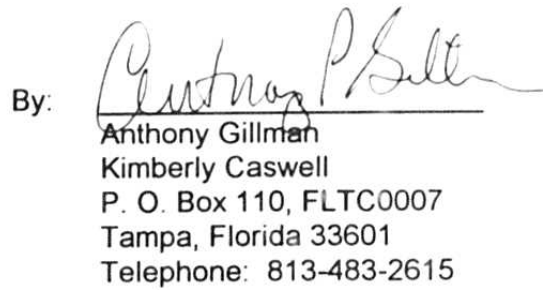 By: Anthony P Gillman
Anthony Gillman
Kimberly Caswell
P. O. Box 110, FLTC0007
Tampa, Florida 33601
Telephone: 813-483-2615